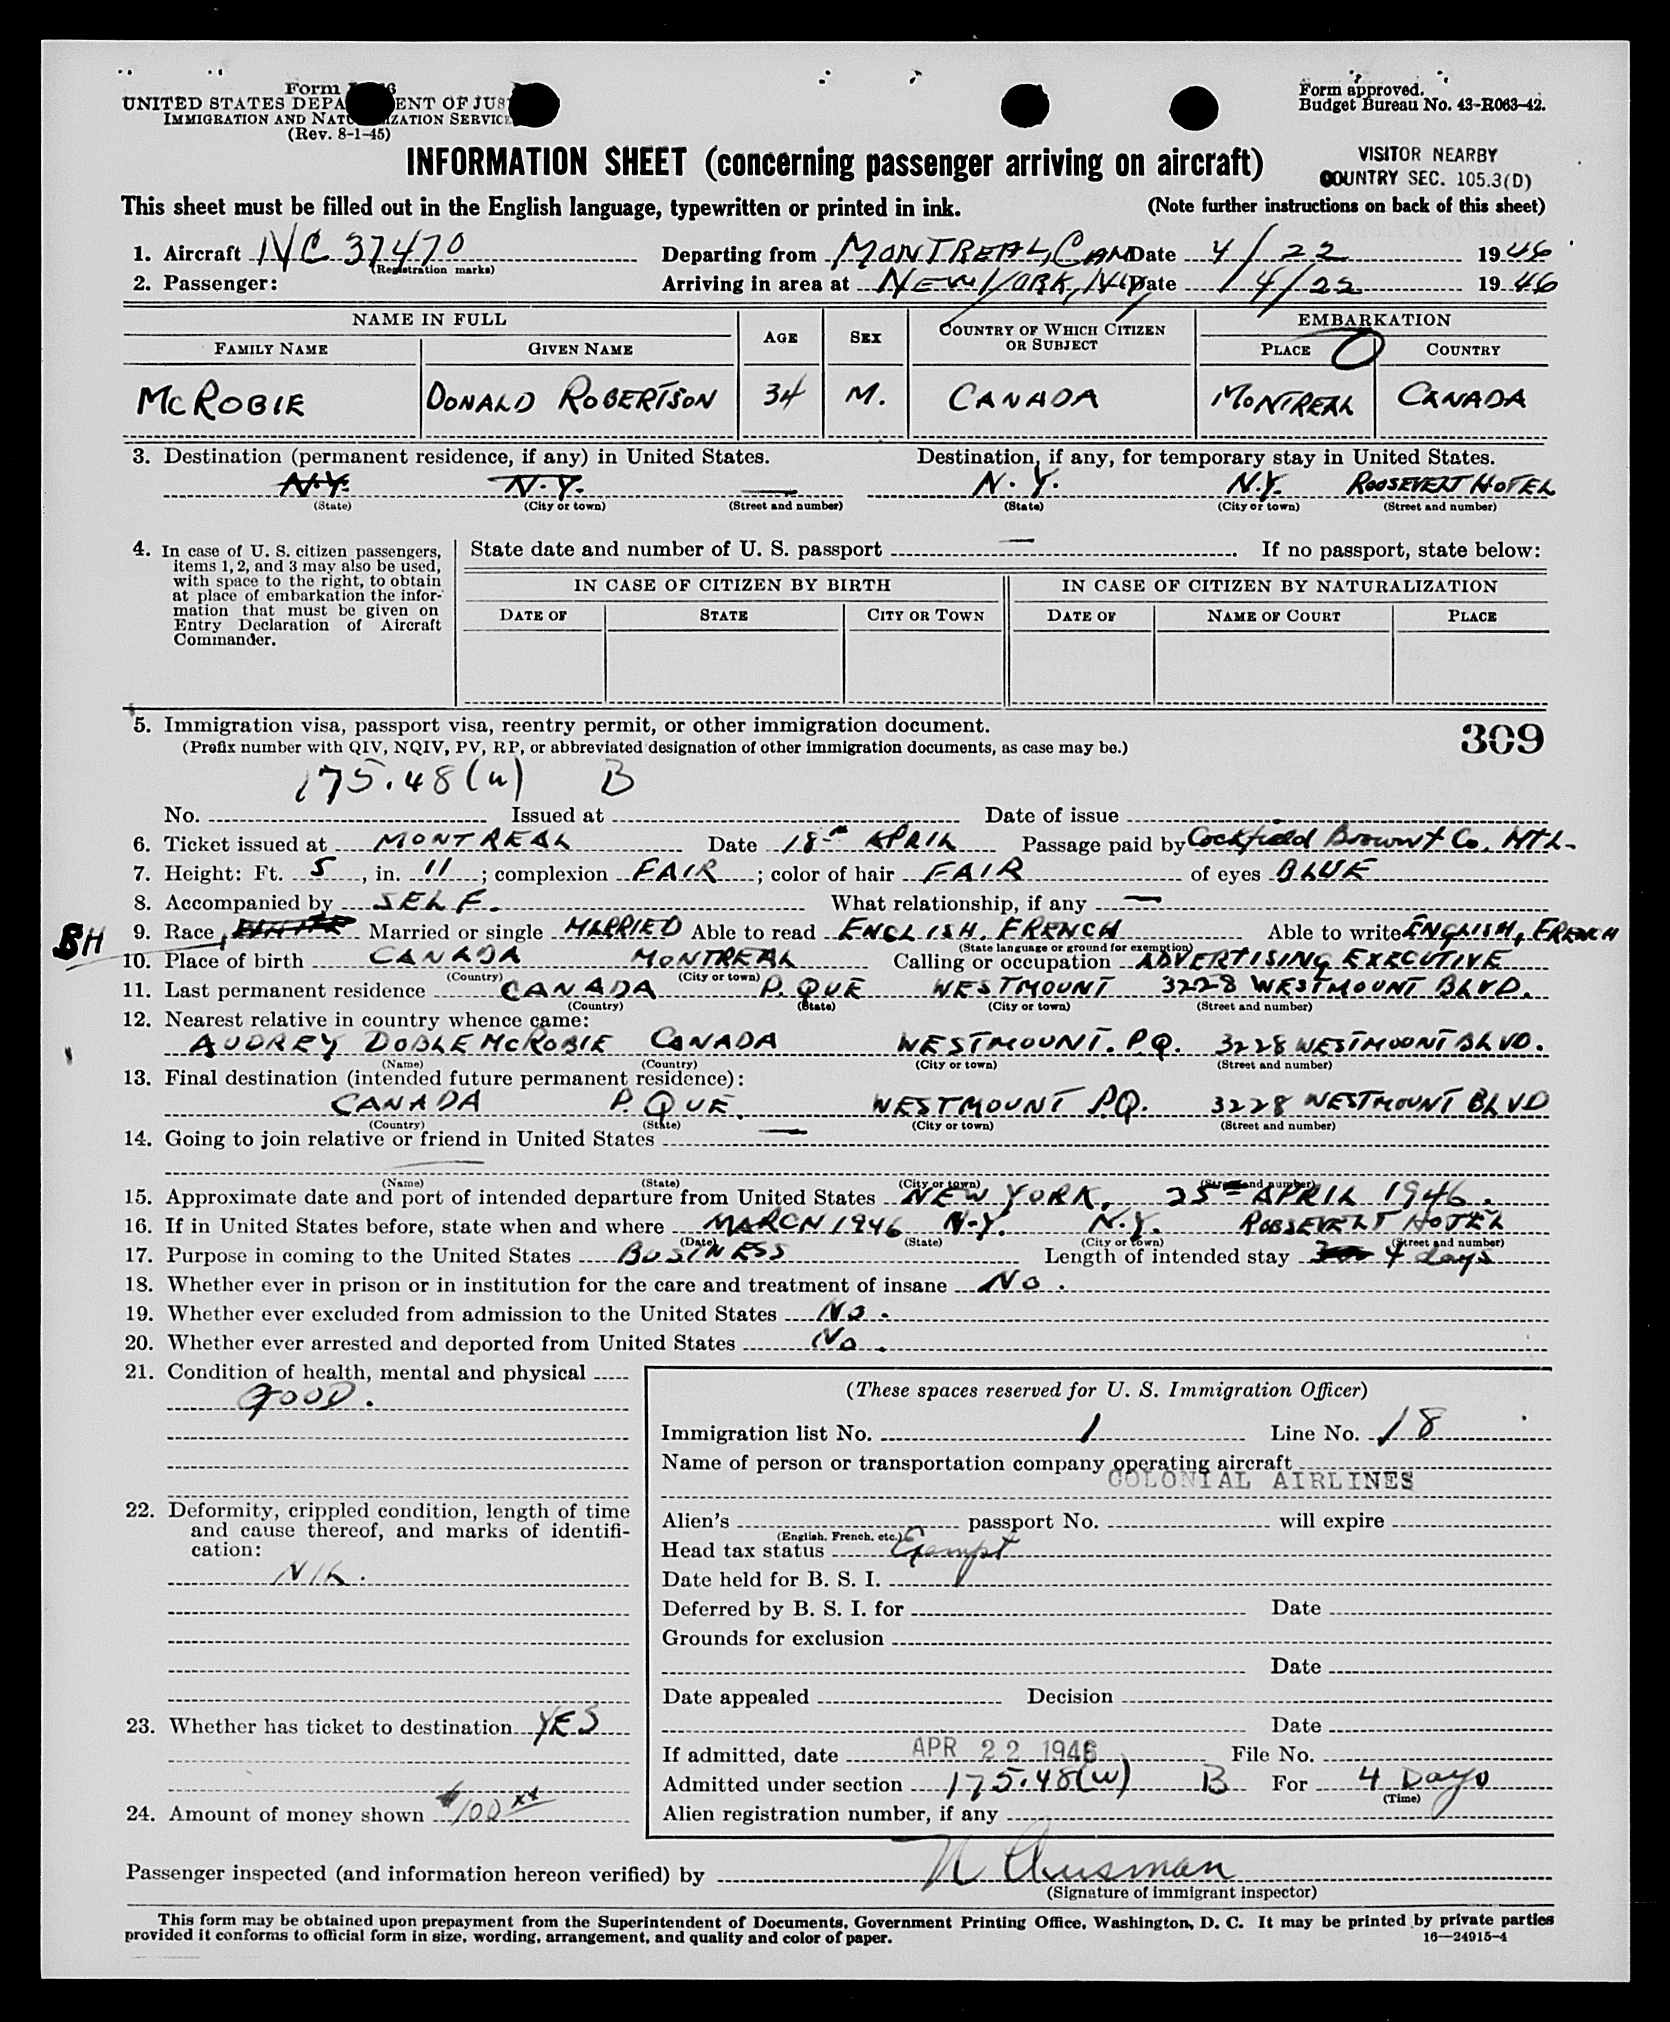 Form
UNITED STATES DEPA ENT OF JUS
IMMIGRATION AND NATU IZATION SERVICE
(Rev. 8-1-45)
Form approved.
Budget Bureau No. 43-R063-42.
INFORMATION SHEET (concerning passenger arriving on aircraft)
VISITOR NEARBY
COUNTRY SEC. 105.3(D)
This sheet must be filled out in the English language, typewritten or printed in ink.
(Note further instructions on back of this sheet)
1. Aircraft NC 37470 Departing from MONTREAL, CAN Date 4/22 1946
(Registration marks)
2. Passenger: Arriving in area at NEW YORK, N.Y. Date 4/22 1946
NAME IN FULL AGE SEX COUNTRY OF WHICH CITIZEN OR SUBJECT EMBARKATION
FAMILY NAME GIVEN NAME PLACE COUNTRY
MCROBIE DONALD ROBERTSON 34 M. CANADA MONTREAL CANADA
3. Destination (permanent residence, if any) in United States. Destination, if any, for temporary stay in United States.
N.Y. N.Y. — N.Y. N.Y. ROOSEVELT HOTEL
(State) (City or town) (Street and number) (State) (City or town) (Street and number)
4. In case of U. S. citizen passengers, items 1, 2, and 3 may also be used, with space to the right, to obtain at place of embarkation the information that must be given on Entry Declaration of Aircraft Commander.
State date and number of U. S. passport —. If no passport, state below:
IN CASE OF CITIZEN BY BIRTH IN CASE OF CITIZEN BY NATURALIZATION
DATE OF STATE CITY OR TOWN DATE OF NAME OF COURT PLACE
5. Immigration visa, passport visa, reentry permit, or other immigration document. 309
(Prefix number with QIV, NQIV, PV, RP, or abbreviated designation of other immigration documents, as case may be.)
175.48(w) B
No. Issued at Date of issue
6. Ticket issued at MONTREAL Date 18th APRIL Passage paid by Cockfield Brown & Co. MTL.
7. Height: Ft. 5, in. 11; complexion FAIR; color of hair FAIR of eyes BLUE
8. Accompanied by SELF. What relationship, if any —
9. Race Married or single MARRIED Able to read ENGLISH, FRENCH Able to write ENGLISH, FRENCH
(State language or ground for exemption)
10. Place of birth CANADA MONTREAL Calling or occupation ADVERTISING EXECUTIVE
(Country) (City or town)
11. Last permanent residence CANADA P. QUE WESTMOUNT 3228 WESTMOUNT BLVD.
(Country) (State) (City or town) (Street and number)
12. Nearest relative in country whence came:
AUDREY DOBLE MCROBIE CANADA WESTMOUNT. P.Q. 3228 WESTMOUNT BLVD.
(Name) (Country) (City or town) (Street and number)
13. Final destination (intended future permanent residence):
CANADA P. QUE. WESTMOUNT P.Q. 3228 WESTMOUNT BLVD
(Country) (State) (City or town) (Street and number)
14. Going to join relative or friend in United States —
(Name) (State) (City or town) (Street and number)
15. Approximate date and port of intended departure from United States NEW YORK, 25th APRIL 1946.
16. If in United States before, state when and where MARCH 1946 N.Y. N.Y. ROOSEVELT HOTEL
(Date) (State) (City or town) (Street and number)
17. Purpose in coming to the United States BUSINESS Length of intended stay 4 days
18. Whether ever in prison or in institution for the care and treatment of insane NO.
19. Whether ever excluded from admission to the United States NO.
20. Whether ever arrested and deported from United States NO.
21. Condition of health, mental and physical
GOOD.
22. Deformity, crippled condition, length of time and cause thereof, and marks of identification:
NIL.
23. Whether has ticket to destination YES
24. Amount of money shown $100 xx
(These spaces reserved for U. S. Immigration Officer)
Immigration list No. 1 Line No. 18
Name of person or transportation company operating aircraft
COLONIAL AIRLINES
Alien's passport No. will expire
(English, French, etc.)
Head tax status Exempt
Date held for B. S. I.
Deferred by B. S. I. for Date
Grounds for exclusion
Date
Date appealed Decision
Date
If admitted, date APR 22 1946 File No.
Admitted under section 175.48(w) B For 4 Days
(Time)
Alien registration number, if any
Passenger inspected (and information hereon verified) by
(Signature of immigrant inspector)
This form may be obtained upon prepayment from the Superintendent of Documents, Government Printing Office, Washington, D. C. It may be printed by private parties
provided it conforms to official form in size, wording, arrangement, and quality and color of paper.
16—24915-4